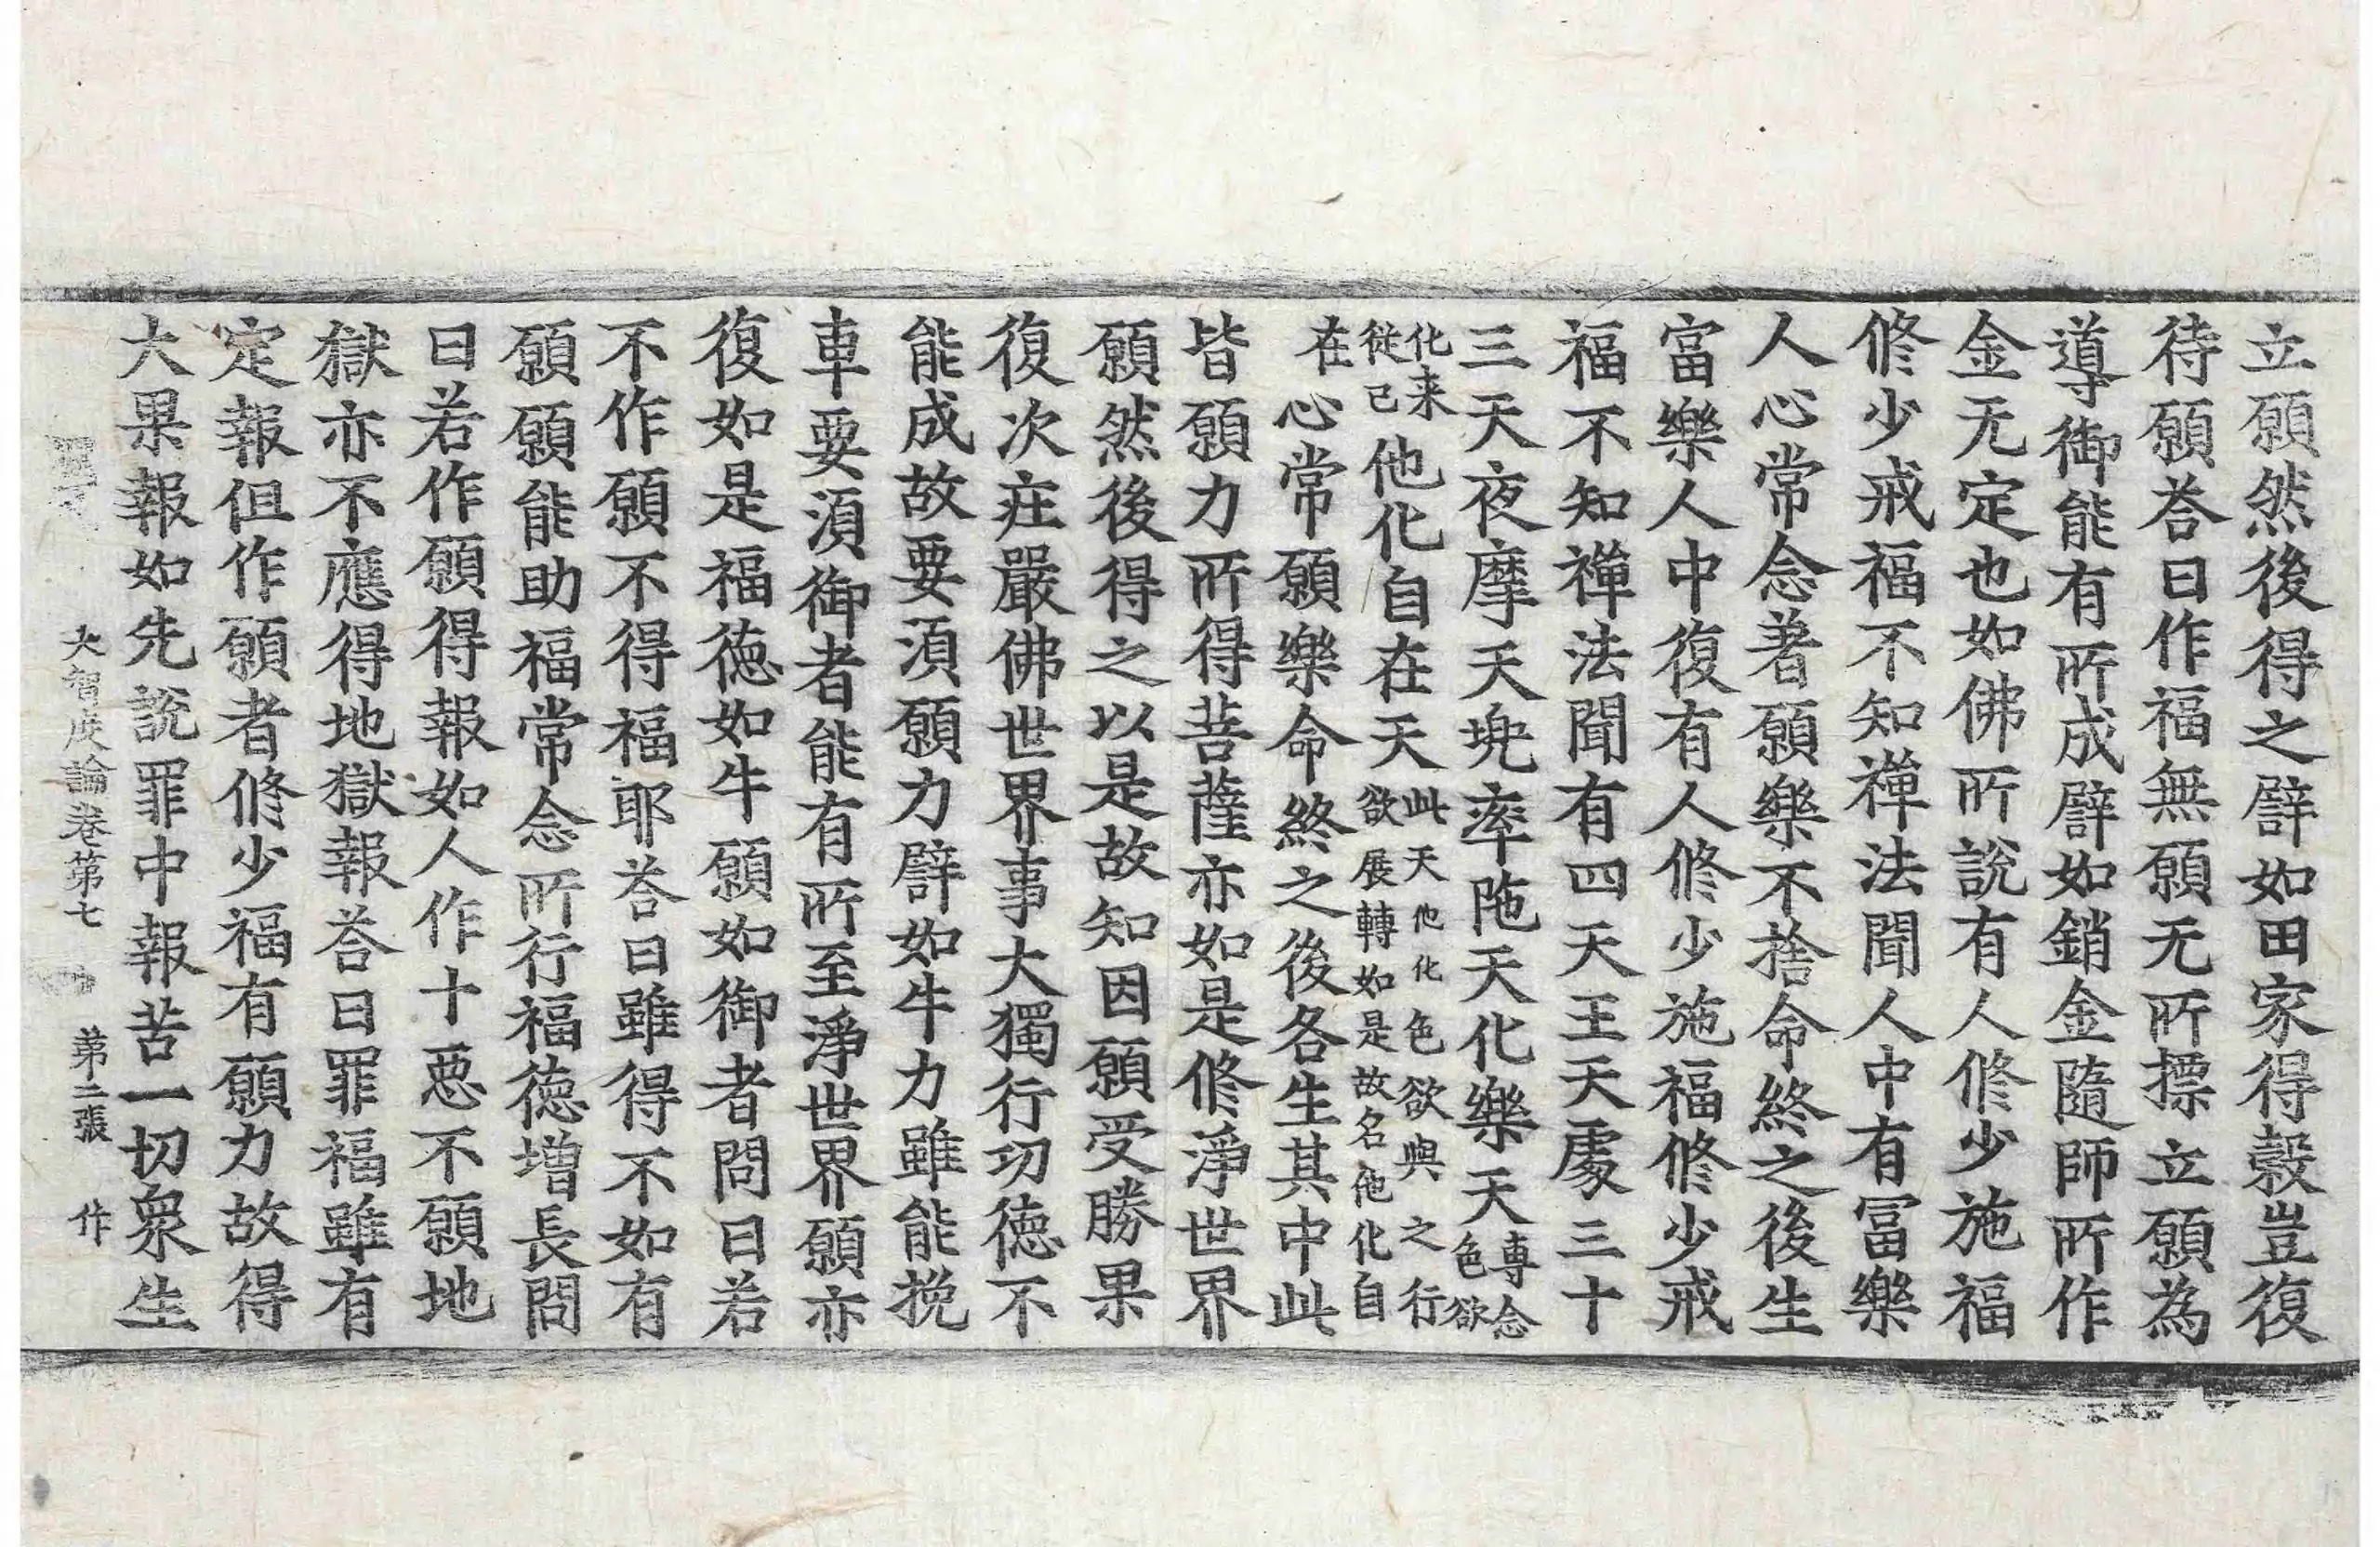 立願然後得之譬如田家得穀豈復
待願荅曰作福無願无所摽立願為
導御能有所成譬如銷金隨師所作
金无定也如佛所說有人修少施福
修少戒福不知禪法聞人中有冨樂
人心常念著願樂不捨命終之後生
富樂人中復有人修少施福修少戒
福不知禪法聞有四天王天處三十
三天夜摩天兠率陁天化樂天專念色欲
化来從己他化自在天此天他化色欲與之行欲展轉如是故名他化自
在心常願樂命終之後各生其中此
皆願力所得菩薩亦如是修淨世界
願然後得之以是故知因願受勝果
復次莊嚴佛世界事大獨行功徳不
能成故要湏願力譬如牛力雖能挽
車要湏御者能有所至淨世界願亦
復如是福徳如牛願如御者問曰若
不作願不得福耶荅曰雖得不如有
願願能助福常念所行福徳增長問
曰若作願得報如人作十惡不願地
獄亦不應得地獄報荅曰罪福雖有
定報但作願者修少福有願力故得
大果報如先說罪中報苦一切衆生
大智度論卷第七 第二張 作